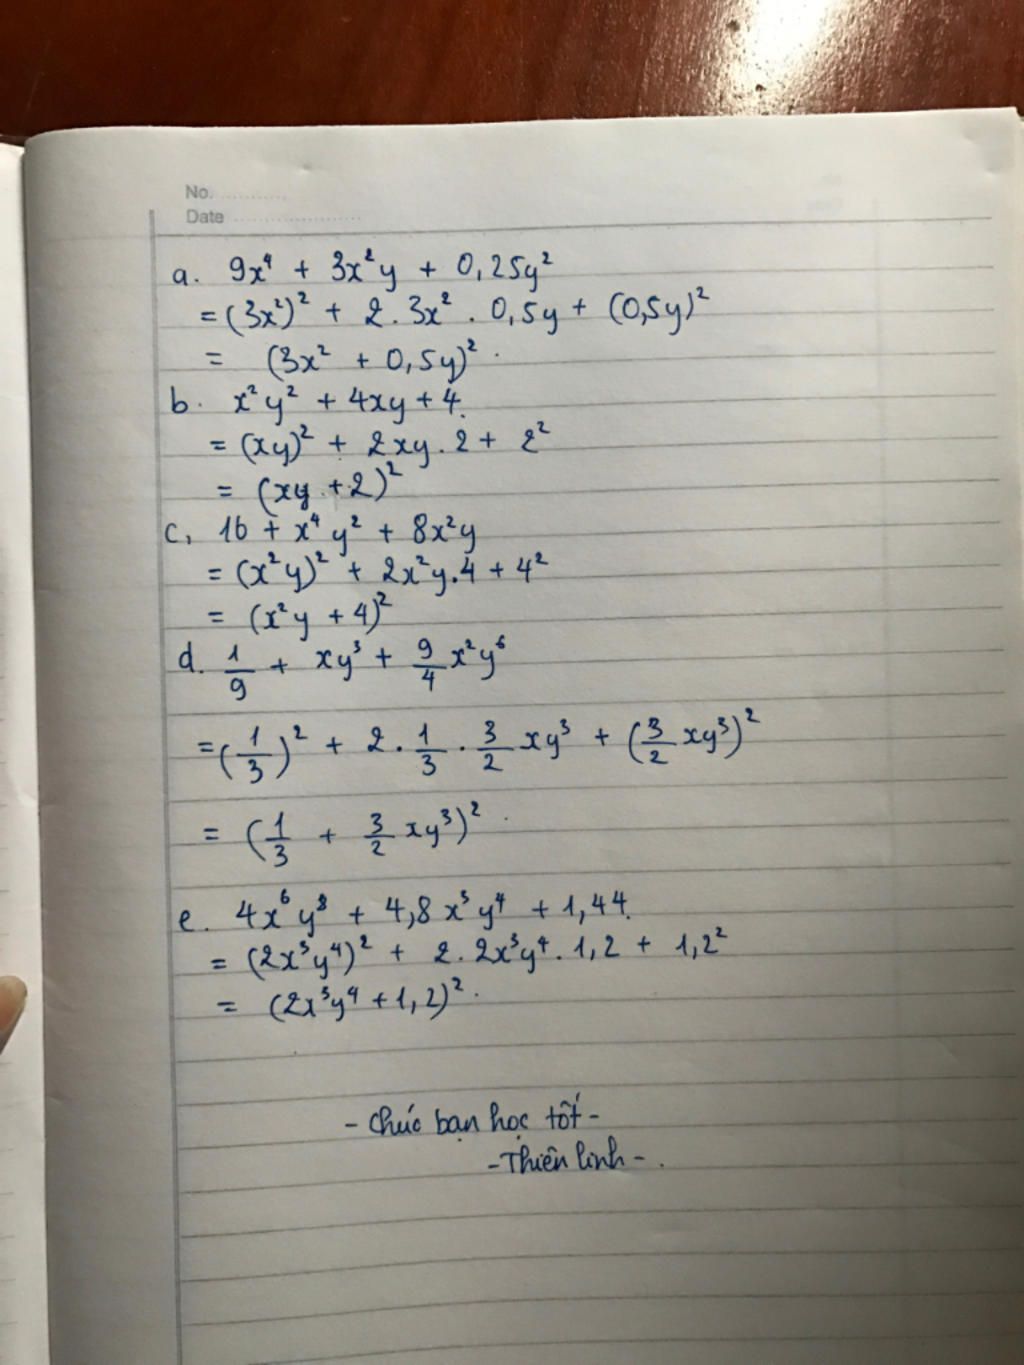 No. ............
Date ......................
a. 9x⁴ + 3x²y + 0,25y²
= (3x²)² + 2.3x² . 0,5y + (0,5y)²
= (3x² + 0,5y)² .
b. x²y² + 4xy + 4.
= (xy)² + 2xy.2 + 2²
= (xy + 2)²
c, 16 + x⁴y² + 8x²y
= (x²y)² + 2x²y.4 + 4²
= (x²y + 4)²
d. 1/9 + xy³ + 9/4 x²y⁶
= (1/3)² + 2 . 1/3 . 3/2 xy³ + (3/2 xy³)²
= (1/3 + 3/2 xy³)² .
e. 4x⁶y⁸ + 4,8x³y⁴ + 1,44.
= (2x³y⁴)² + 2.2x³y⁴.1,2 + 1,2²
= (2x³y⁴ + 1,2)² .
- Chúc bạn học tốt -
- Thiên linh - .